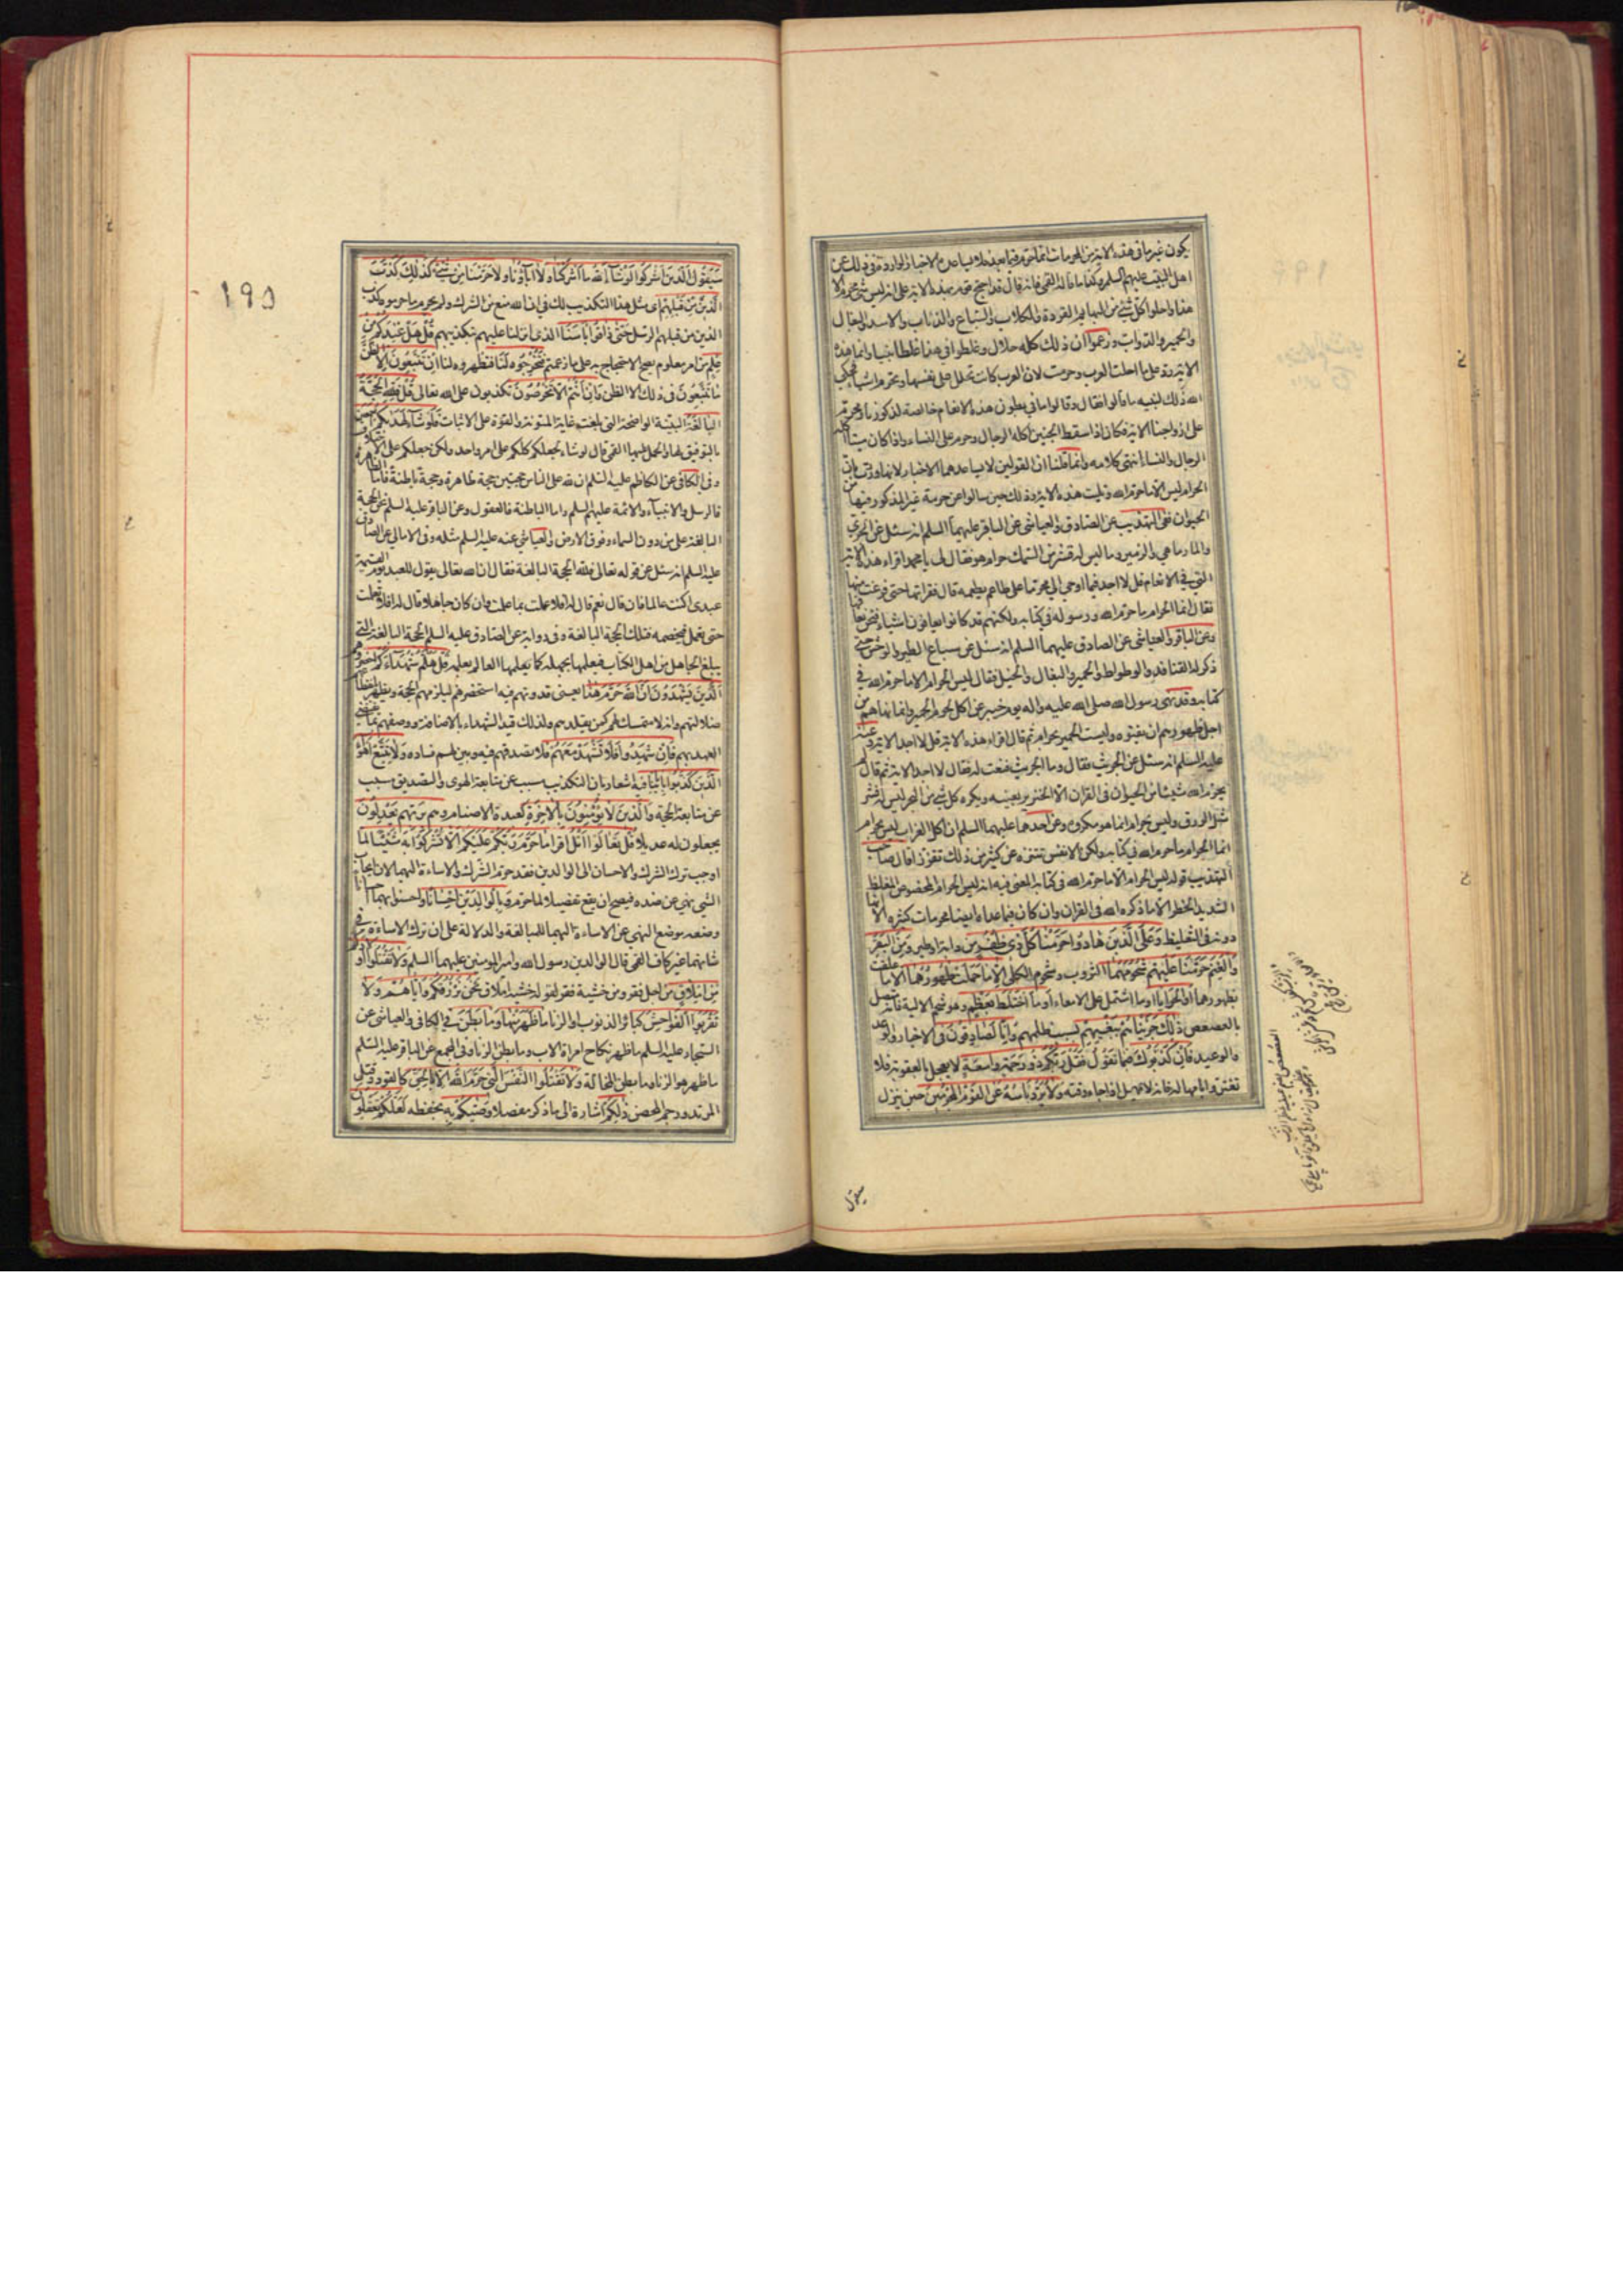 يكون غير ما في هذه الاية من المحرمات انما حرم فيما بعد فلا يساعده الاخبار الواردة في ذلك عن
اهل البيت عليهم السلم وكذا ما قاله القمي فانه قال قد احتج قوم بهذه الاية على انه ليس شئ محرم الا
هذا واحلوا كل شئ من البهايم القردة والكلاب والسباع والذئاب والاسد والبغال
والحمير والدواب وزعموا ان ذلك كله حلال وغلطوا في هذا غلطا بينا وانما هذه
الاية رد على ما احلت العرب وحرمت لان العرب كانت تحلل على نفسها وتحرم اشياء فحكى
الله ذلك لنبيه ما قالوا فقال وقالوا ما في بطون هذه الانعام خالصة لذكورنا ومحرم
على ازواجنا الاية فكان اذا سقط الجنين اكله الرجال وحرم على النساء واذا كان ميتا اكله
الرجال والنساء انتهى كلامه وانما قلنا ان القولين لا يساعدهما الاخبار لانها وردت بان
الحرام ليس الا ما حرم الله وتليت هذه الاية وذلك حين سالوا عن حرمة غير المذكور فيها من
الحيوان ففي التهذيب عن الصادق والعياشي عن الباقر عليهما السلم انه سئل عن الجري
والمارماهي والزمير وما ليس له قشر من السمك حرام هو فقال لي يا محمد اقراء هذه الاية
التي في الانعام قل لا اجد فيما اوحي الي محرما على طاعم يطعمه قال فقراتها حتى فرغت منها
فقال انما الحرام ما حرم الله ورسوله في كتابه ولكنهم قد كانوا يعافون اشياء فنحن نعافها
وعن الباقر والعياشي عن الصادق عليهما السلم انه سئل عن سباع الطير والوحش حتى
ذكر له القنافذ والوطواط والحمير والبغال والخيل فقال ليس الحرام الا ما حرم الله في
كتابه وقد نهى رسول الله صلى الله عليه واله يوم خيبر عن اكل لحوم الحمير وانما نهاهم من
اجل ظهورهم ان يفنوه وليست الحمير بحرام ثم قال اقراء هذه الاية قل لا اجد الاية وعنه
عليه السلم انه سئل عن الجريث فقال وما الجريث فنعت له فقال لا اجد الاية ثم قال لم
يحرم الله شيئا من الحيوان في القران الا الخنزير بعينه ويكره كل شئ من البحر ليس له قشر
مثل الورق وليس بحرام انما هو مكروه وعن احدهما عليهما السلم ان اكل الغراب ليس بحرام
انما الحرام ما حرم الله في كتابه ولكن الانفس تتنزه عن كثير من ذلك تقززا قال صاحب
التهذيب قوله ليس الحرام الا ما حرم الله في كتابه المعنى فيه انه ليس الحرام المخصوص المغلظ
الشديد الحظر الا ما ذكره الله في القران وان كان فيما عداه ايضا محرمات كثيرة الا انها
دونه في التغليظ وَعَلَى الَّذِينَ هَادُوا حَرَّمْنَا كُلَّ ذِي ظُفُرٍ من دابة او طير وَمِنَ الْبَقَرِ
وَالْغَنَمِ حَرَّمْنَا عَلَيْهِمْ شُحُومَهُمَا الثروب وشحوم الكلى اِلَّا مَا حَمَلَتْ ظُهُورُهُمَا الا ما علقت
بظهورهما اَوِ الْحَوَايَا او ما اشتمل على الامعاء اَوْ مَا اخْتَلَطَ بِعَظْمٍ وهو شحم الالية فانه متصل
بالعصعص ذَلِكَ جَزَيْنَاهُمْ بِبَغْيِهِمْ بسبب ظلمهم وَاِنَّا لَصَادِقُونَ في الاخبار والوعد
والوعيد فَاِنْ كَذَّبُوكَ فيما تقول فَقُلْ رَبُّكُمْ ذُو رَحْمَةٍ وَاسِعَةٍ لا يعجل العقوبة فلا
تغتروا بامهاله فانه لا يهمل اذا جاء وقته وَلَا يُرَدُّ بَاْسُهُ عَنِ الْقَوْمِ الْمُجْرِمِينَ حين ينزل
سيقول
١٩٥
سَيَقُولُ الَّذِينَ اَشْرَكُوا لَوْ شَاءَ اللهُ مَا اَشْرَكْنَا وَلَا آبَاؤُنَا وَلَا حَرَّمْنَا مِنْ شَيْءٍ كَذَلِكَ كَذَّبَ
الَّذِينَ مِنْ قَبْلِهِمْ اي مثل هذا التكذيب لك في ان الله منع من الشرك ولم يحرم ما حرموه كذب
الذين من قبلهم الرسل حَتَّى ذَاقُوا بَاْسَنَا الذي انزلنا عليهم بتكذيبهم قُلْ هَلْ عِنْدَكُمْ مِنْ
عِلْمٍ من امر معلوم يصح الاحتجاج به على ما زعمتم فَتُخْرِجُوهُ لَنَا فتظهروه لنا اِنْ تَتَّبِعُونَ اِلَّا الظَّنَّ
ما تتبعون في ذلك الا الظن وَاِنْ اَنْتُمْ اِلَّا تَخْرُصُونَ تكذبون على الله تعالى قُلْ فَلِلّهِ الْحُجَّةُ
الْبَالِغَةُ البينة الواضحة التي بلغت غاية المتانة والقوة على الاثبات فَلَوْ شَاءَ لَهَدَاكُمْ اَجْمَعِينَ
بالتوفيق لها والحمل عليها القمي قال لو شاء لجعلكم كلكم على امر واحد ولكن جعلكم على الاختلاف
وفي الكافي عن الكاظم عليه السلم ان لله على الناس حجتين حجة ظاهرة وحجة باطنة فاما الظاهرة
فالرسل والانبياء والائمة عليهم السلم واما الباطنة فالعقول وعن الباقر عليه السلم نحن الحجة
البالغة على من دون السماء وفوق الارض والعياشي عنه عليه السلم مثله وفي الامالي عن الصادق
عليه السلم انه سئل عن قوله تعالى فلله الحجة البالغة فقال ان الله تعالى يقول للعبد يوم القيمة
عبدي اكنت عالما فان قال نعم قال له افلا عملت بما علمت وان كان جاهلا قال له افلا تعلمت
حتى تعمل فيخصمه فتلك الحجة البالغة وفي رواية عن الصادق عليه السلم الحجة البالغة التي
يبلغ الجاهل من اهل الكتاب فيعلمها بجهله كما يعلمها العالم بعلمه قُلْ هَلُمَّ شُهَدَاءَكُمُ احضروهم
الَّذِينَ يَشْهَدُونَ اَنَّ اللهَ حَرَّمَ هَذَا يعني قدوتهم فيه استحضرهم ليلزمهم الحجة ويظهر بانقطاعهم
ضلالتهم وانه لا متمسك لهم كمن يقلدهم ولذلك قيد الشهداء بالاضافة ووصفهم بما يقتضي
العهد بهم فَاِنْ شَهِدُوا فَلَا تَشْهَدْ مَعَهُمْ فلا تصدقهم فيه وبين لهم فساده وَلَا تَتَّبِعْ اَهْوَاءَ
الَّذِينَ كَذَّبُوا بِآيَاتِنَا فيه اشعار بان التكذيب مسبب عن متابعة الهوى والتصديق مسبب
عن متابعة الحجة وَالَّذِينَ لَا يُؤْمِنُونَ بِالْآخِرَةِ كعبدة الاصنام وَهُمْ بِرَبِّهِمْ يَعْدِلُونَ
يجعلون له عديلا قُلْ تَعَالَوْا اَتْلُ اقرا مَا حَرَّمَ رَبُّكُمْ عَلَيْكُمْ اَلَّا تُشْرِكُوا بِهِ شَيْئًا لما
اوجب ترك الشرك والاحسان الى الوالدين فقد حرم الشرك والاساءة اليهما لان ايجاب
الشئ نهي عن ضده فيصح ان يقع تفصيلا لما حرم وَبِالْوَالِدَيْنِ اِحْسَانًا واحسنوا بهما احسانا
وضعه موضع النهي عن الاساءة اليهما للمبالغة والدلالة على ان ترك الاساءة في
شانهما غير كاف القمي قال الوالدين رسول الله وامير المؤمنين عليهما السلم وَلَا تَقْتُلُوا اَوْلَادَكُمْ
مِنْ اِمْلَاقٍ من اجل فقر ومن خشية فقر لقوله خشية املاق نَحْنُ نَرْزُقُكُمْ وَاِيَّاهُمْ وَلَا
تَقْرَبُوا الْفَوَاحِشَ كبائر الذنوب او الزنا مَا ظَهَرَ مِنْهَا وَمَا بَطَنَ في الكافي والعياشي عن
السجاد عليه السلم ما ظهر نكاح امراة الاب وما بطن الزنا وفي المجمع عن الباقر عليه السلم
ما ظهر هو الزنا وما بطن المخالة وَلَا تَقْتُلُوا النَّفْسَ الَّتِي حَرَّمَ اللهُ اِلَّا بِالْحَقِّ كالقود وقتل
المرتد ورجم المحصن ذَلِكُمْ اشارة الى ما ذكر مفصلا وَصَّاكُمْ بِهِ بحفظه لَعَلَّكُمْ تَعْقِلُونَ